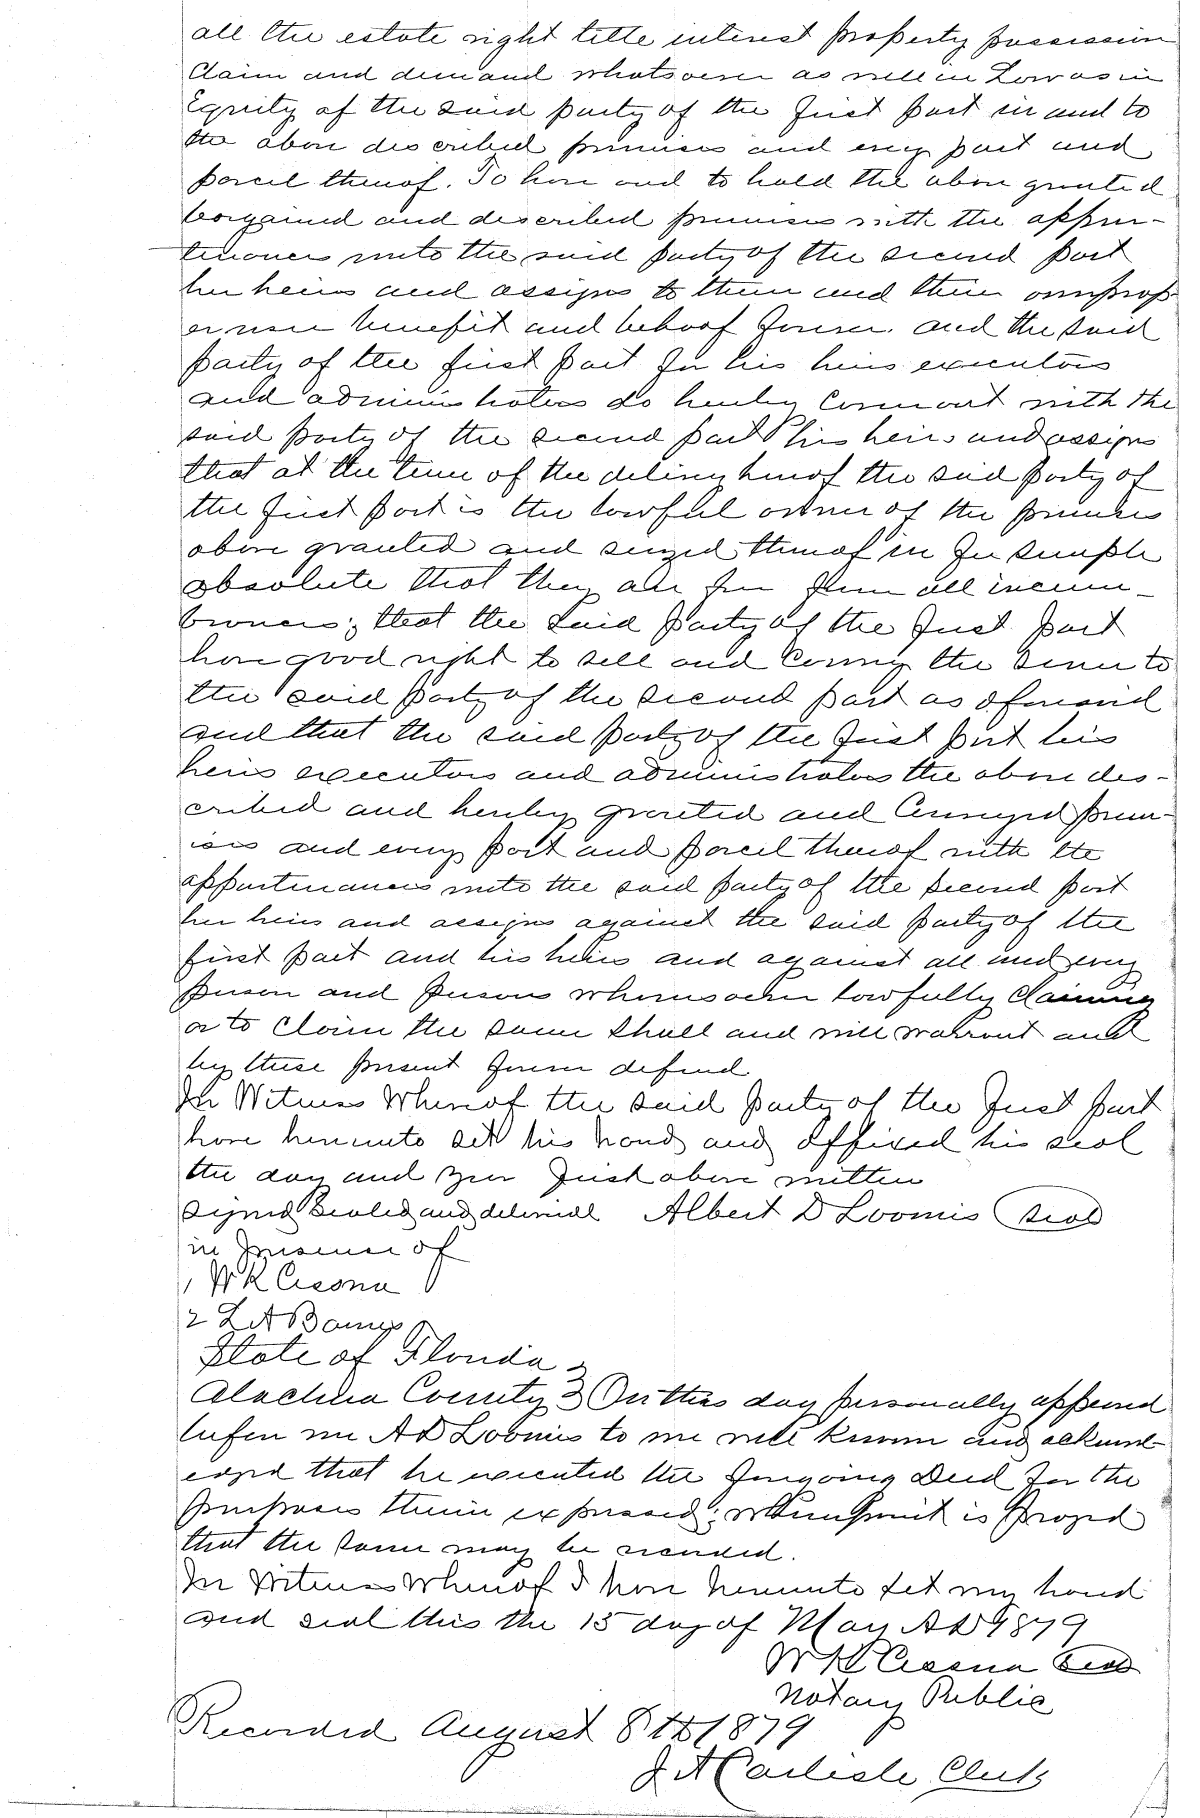 all the estate right title interest property possession
Claim and demand whatsoever as well in Law as in
Equity of the said party of the first part in and to
the above described premises and every part and
parcel thereof. To have and to hold the above granted
bargained and described premises with the appur-
tenances unto the said party of the second part
her heirs and assigns to them and their own prop
er use benefit and behoof forever. and the said
party of the first part for his heirs executors
and administrators do hereby Covenant with the
said party of the second part his heirs and assigns
that at the time of the delivery hereof the said party of
the first part is the lawful owner of the premises
above granted and seized thereof in fee simple
absolute that they are free from all incum-
brances; that the said party of the first part
have good right to sell and Convey the same to
the said party of the second part as aforesaid
and that the said party of the first part his
heirs executors and administrators the above des-
cribed and hereby granted and Conveyed prem-
ises and every part and parcel thereof with the
appurtenances unto the said party of the second part
her heirs and assigns against the said party of the
first part and his heirs and against all and every
person and persons whomsoever lawfully claiming
or to claim the same shall and will warrant and
by these present forever defend
In Witness Whereof the said party of the first part
have hereunto set his hand and affixed his seal
the day and year first above written
Signed Sealed and delivered Albert D Loomis Seal
in presence of
1 W K Cessna
2 L A Barnes
State of Florida
Alachua County } On this day personally appeared
before me A D Loomis to me well known and acknowl-
edged that he executed the foregoing Deed for the
purposes therein expressed; whereupon it is prayed
that the same may be recorded.
In Witness Whereof I have hereunto set my hand
and seal this the 15 day of May A D 1879
W K Cessna Seal
Notary Public
Recorded August 8th 1879
J A Carlisle Clerk